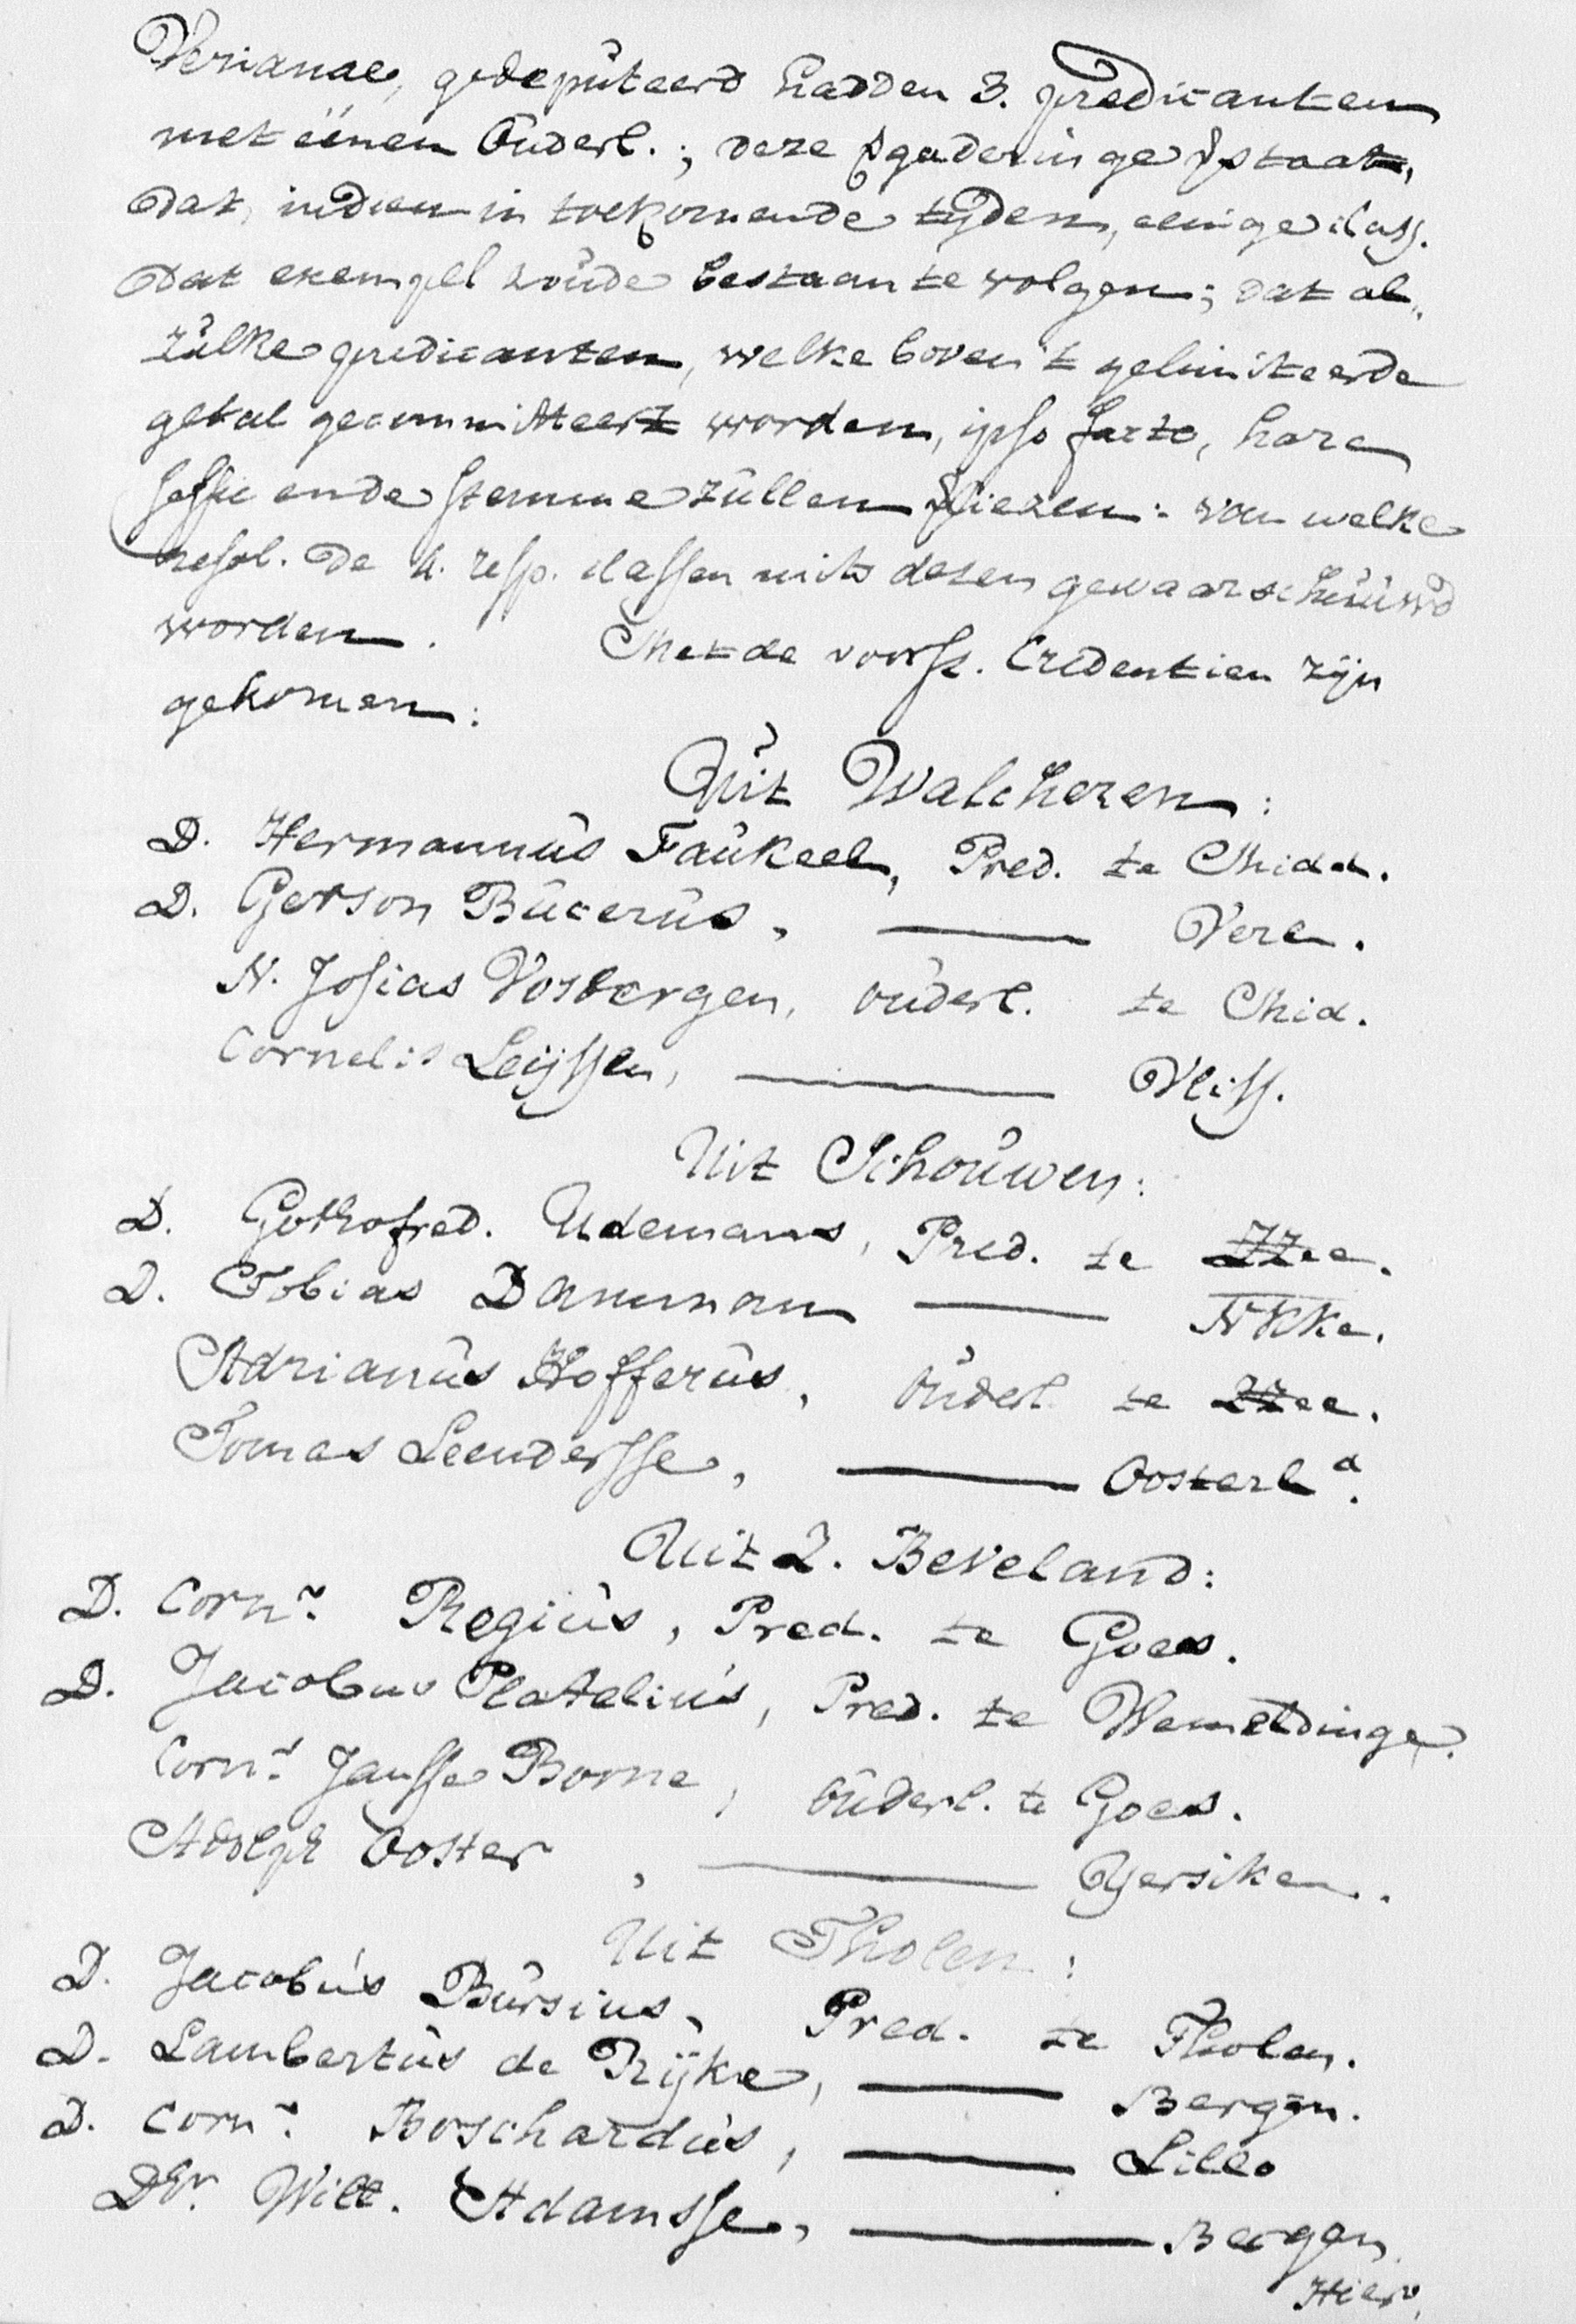 Verianae, gedeputeerd hadden 3. predicanten
met eenen Ouderl.; deze vgaderinge vstaat,
Dat, indien in toekomende tyden, eenige class.
Dat exempel zoude bestaan te volgen; dat al„
zulke predicanten, welke boven 't gelimiteerde
getal gecommitteert worden, ipso facto, hare
sessie ende stemme zullen vliezen: van welke
resol. De 4. resp. classen mits dezen gewaarschuuwd
worden. Met de voorsz. Credentien zijn
gekomen:
Uit Walcheren:
D. Hermannus Faukeel, Pred. te Midd.
D. Gerson Bucerus, —— Vere.
N. Josias Vosbergen, Ouderl. te Mid.
Cornelis Leijssen, —— Vliss.
Uit Schouwen:
D. Gothofred. Udemans, Pred. te ZZee.
D. Tobias Damman —— NKke.
Adrianus Hofferus, Ouderl. te ZZee.
Tomas Leendersse, —— Oosterld.
Uit Z. Beveland:
D. Corns. Regius, Pred. te Goes.
D. Jacobus Platelius, Pred. te Wemeldinge.
Corns. Jansse Borne, Ouderl. te Goes.
Adolph Ooster, —— Yersiken.
Uit Tholen:
D. Jacobus Bursius, Pred. te Tholen.
D. Lambertus de Rijke, —— Bergen.
D. Corns. Boschardus, —— Lillo
Dr. Will. Adamsse, —— Bergen.
Hier